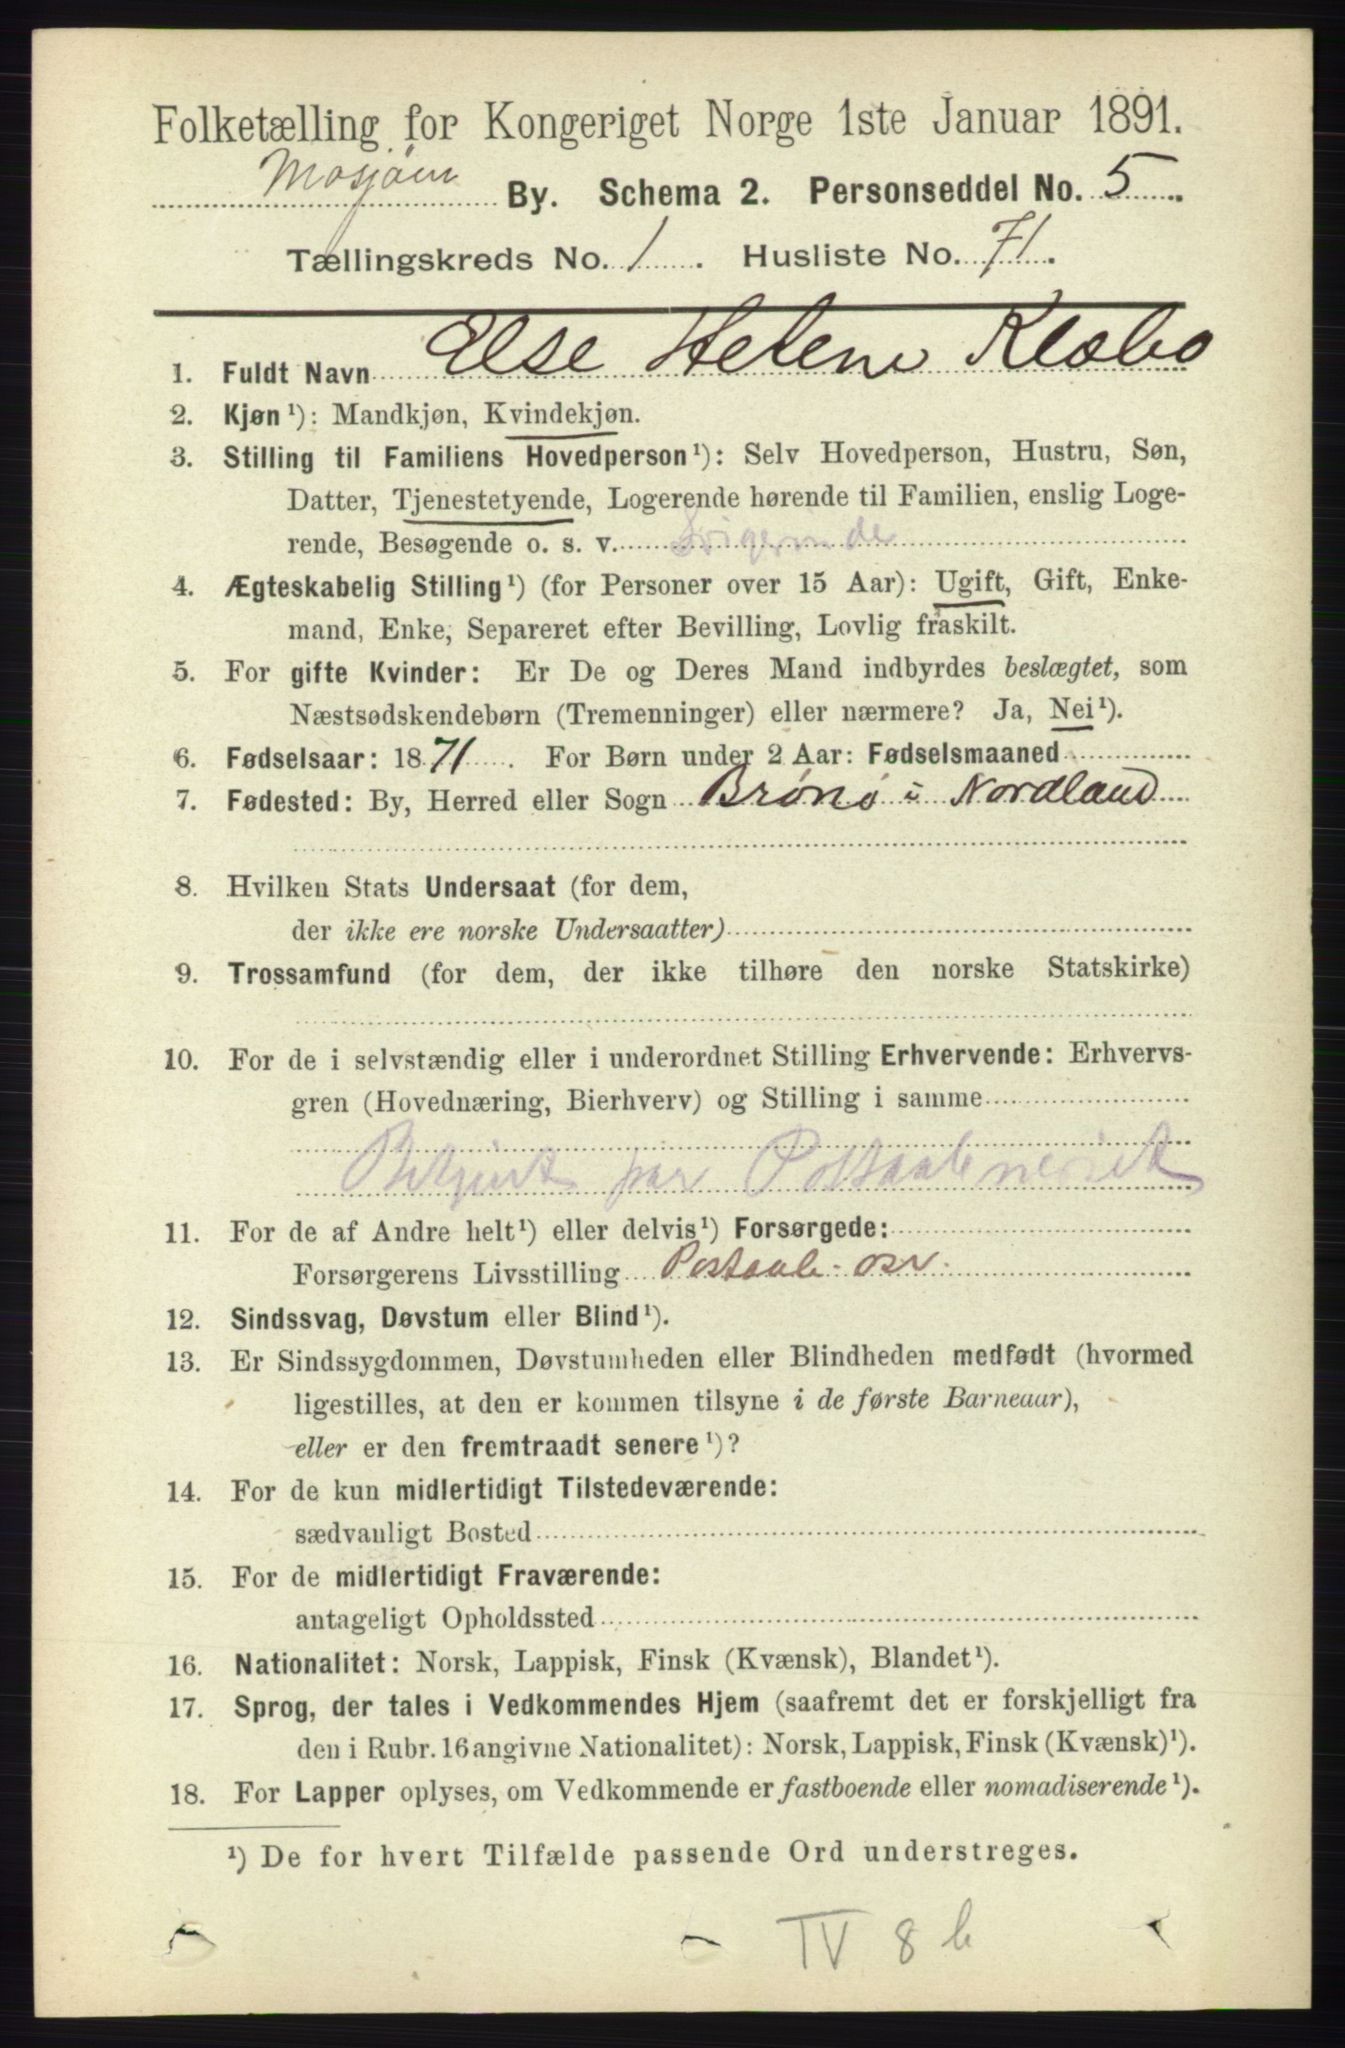 Folketælling for Kongeriget Norge 1ste Januar 1891.
Mosjøen By. Schema 2. Personseddel No. 5.
Tællingskreds No. 1. Husliste No. 71.
1. Fuldt Navn Else Helene Klæbo
2. Kjøn¹): Mandkjøn, Kvindekjøn.
3. Stilling til Familiens Hovedperson¹): Selv Hovedperson, Hustru, Søn,
Datter, Tjenestetyende, Logerende hørende til Familien, enslig Loge-
rende, Besøgende o. s. v. Svigerinde
4. Ægteskabelig Stilling¹) (for Personer over 15 Aar): Ugift, Gift, Enke-
mand, Enke, Separeret efter Bevilling, Lovlig fraskilt.
5. For gifte Kvinder: Er De og Deres Mand indbyrdes beslægtet, som
Næstsødskendebørn (Tremenninger) eller nærmere? Ja, Nei¹).
6. Fødselsaar: 1871. For Børn under 2 Aar: Fødselsmaaned
7. Fødested: By, Herred eller Sogn Brønø i Nordland
8. Hvilken Stats Undersaat (for dem,
der ikke ere norske Undersaatter)
9. Trossamfund (for dem, der ikke tilhøre den norske Statskirke)
10. For de i selvstændig eller i underordnet Stilling Erhvervende: Erhvervs-
gren (Hovednæring, Bierhverv) og Stilling i samme
Betjent paa Postaabneriet
11. For de af Andre helt¹) eller delvis¹) Forsørgede:
Forsørgerens Livsstilling Postaab. osv.
12. Sindssvag, Døvstum eller Blind¹).
13. Er Sindssygdommen, Døvstumheden eller Blindheden medfødt (hvormed
ligestilles, at den er kommen tilsyne i de første Barneaar),
eller er den fremtraadt senere¹)?
14. For de kun midlertidigt Tilstedeværende:
sædvanligt Bosted
15. For de midlertidigt Fraværende:
antageligt Opholdssted
16. Nationalitet: Norsk, Lappisk, Finsk (Kvænsk), Blandet¹).
17. Sprog, der tales i Vedkommendes Hjem (saafremt det er forskjelligt fra
den i Rubr. 16 angivne Nationalitet): Norsk, Lappisk, Finsk (Kvænsk)¹).
18. For Lapper oplyses, om Vedkommende er fastboende eller nomadiserende¹).
¹) De for hvert Tilfælde passende Ord understreges.
IV 8 b